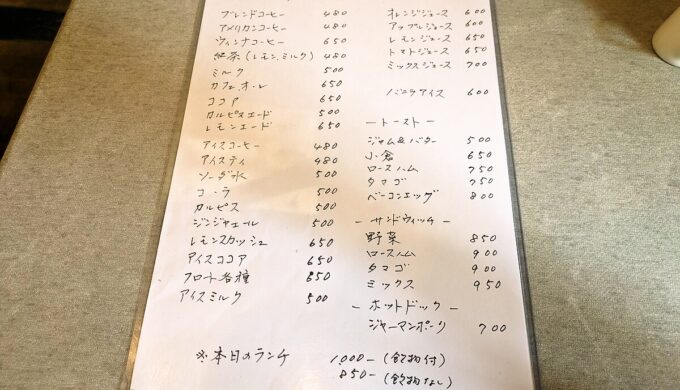 ブレンドコーヒー 480
アメリカンコーヒー 480
ウィンナコーヒー 650
紅茶(レモン、ミルク) 480
ミルク 500
カフェオ・レ 650
ココア 650
カルピスエード 500
レモンエード 650
アイスコーヒー 480
アイスティ 480
ソーダ水 500
コーラ 500
カルピス 500
ジンジャエール 500
レモンスカッシュ 650
アイスココア 650
フロート各種 650
アイスミルク 500
オレンジジュース 600
アップルジュース 600
レモンジュース 650
トマトジュース 650
ミックスジュース 700
バニラアイス 600
ートーストー
ジャム&バター 500
小倉 650
ロースハム 750
タマゴ 750
ベーコンエッグ 800
ーサンドウィッチー
野菜 850
ロースハム 900
タマゴ 900
ミックス 950
ーホットドックー
ジャーマンポーク 700
※本日のランチ 1,000-(飲物付)
850-(飲物なし)